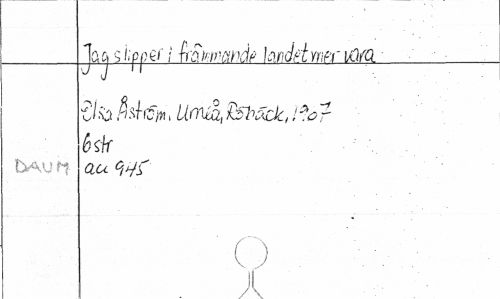 Jag slipper i främmande landet mer vara
Elsa Åström, Umeå, Röbäck, 1907
6 str
DAUM au 945